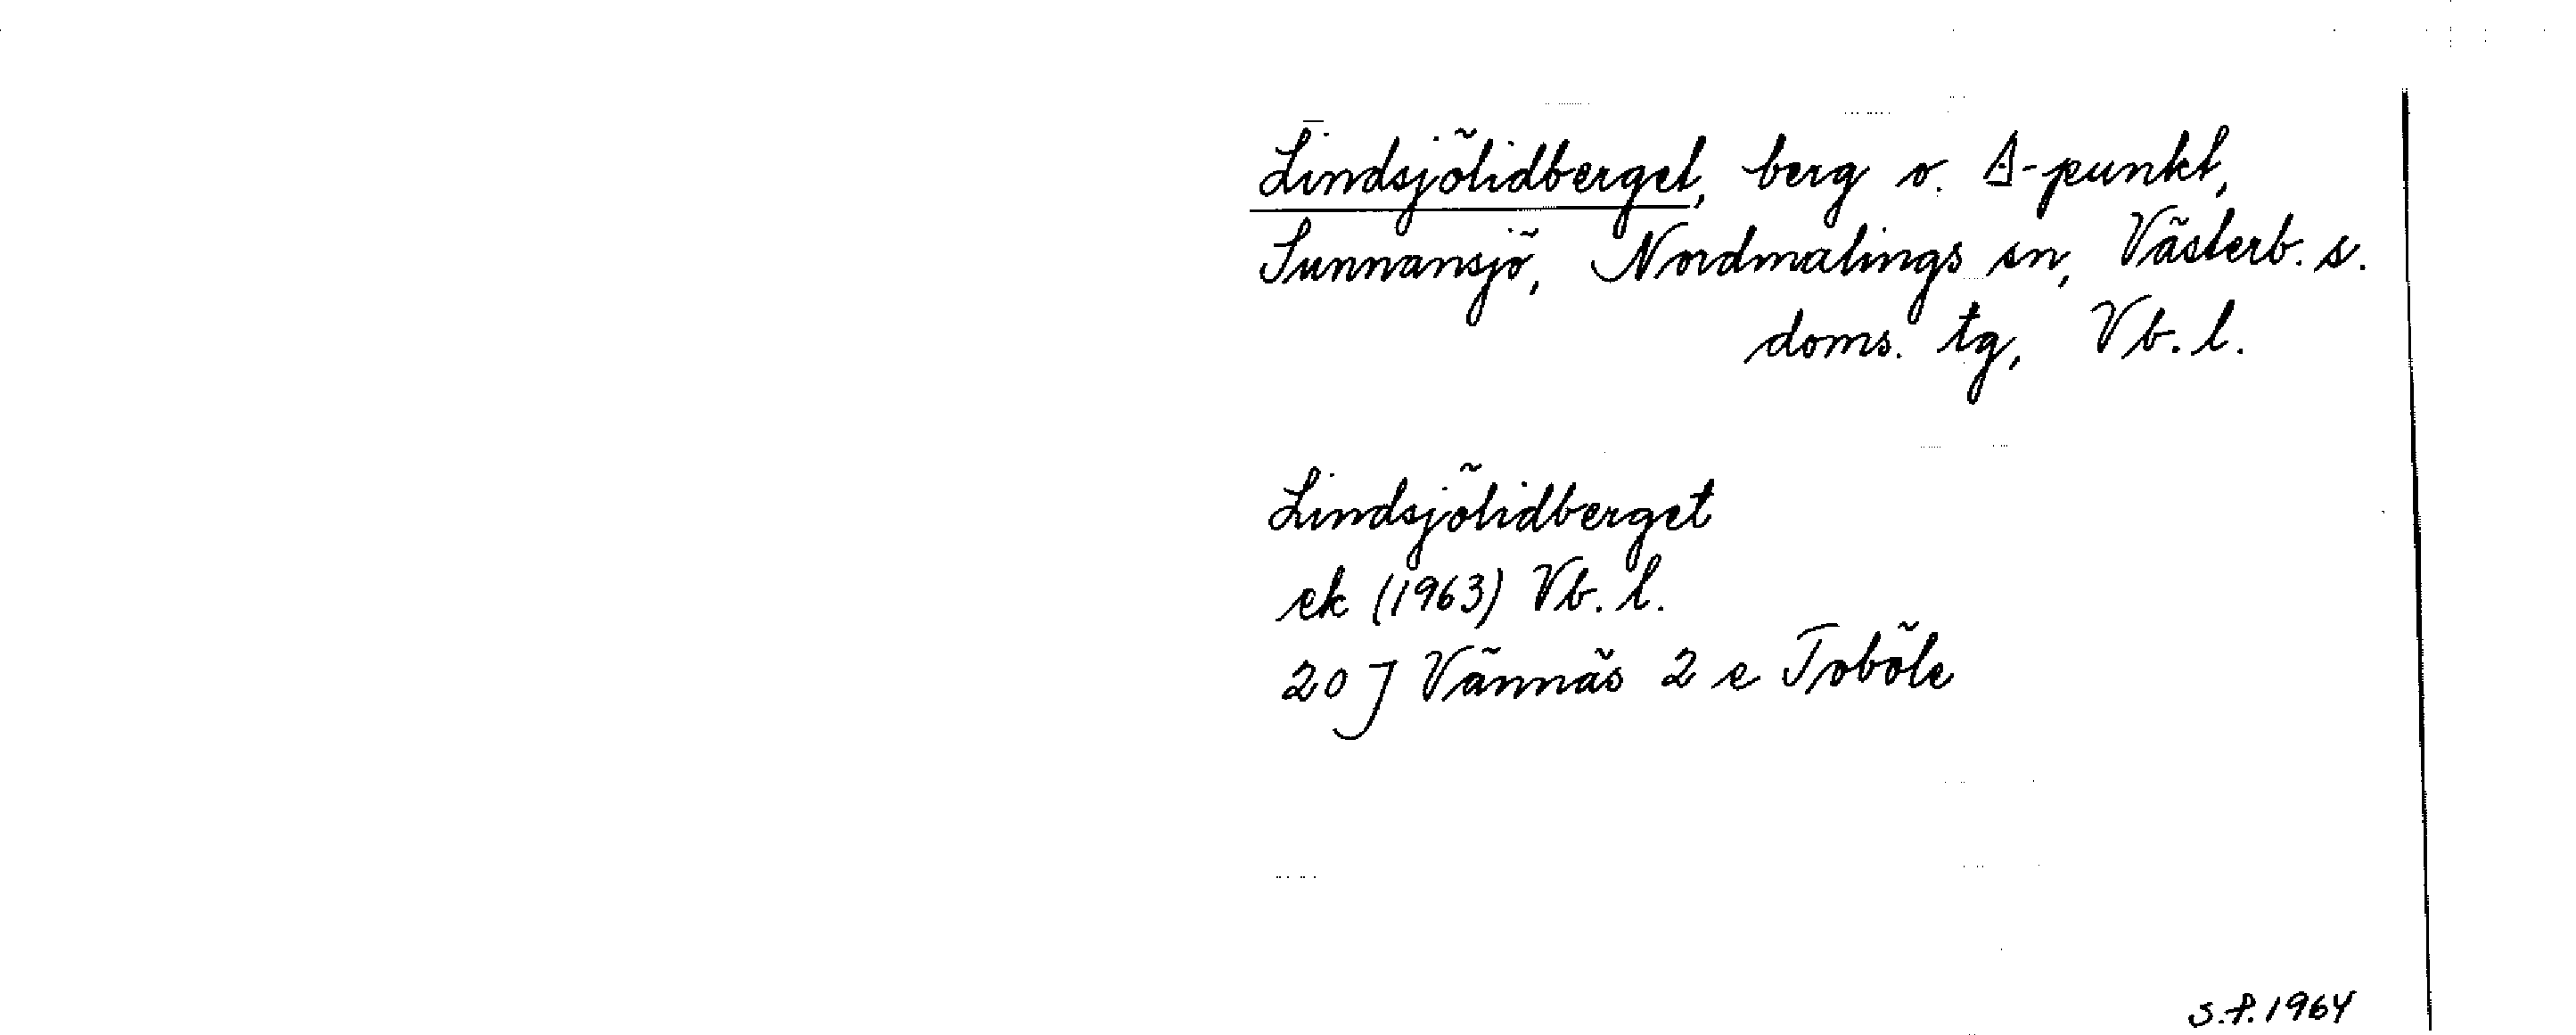 Lindsjölidberget, berg o. Δ-punkt,
Sunnansjö, Nordmalings sn, Västerb. s.
doms. tg, Vb. l.
Lindsjölidberget
ek (1963) Vb. l.
20 J Vännäs 2 e Toböle
S.P. 1964